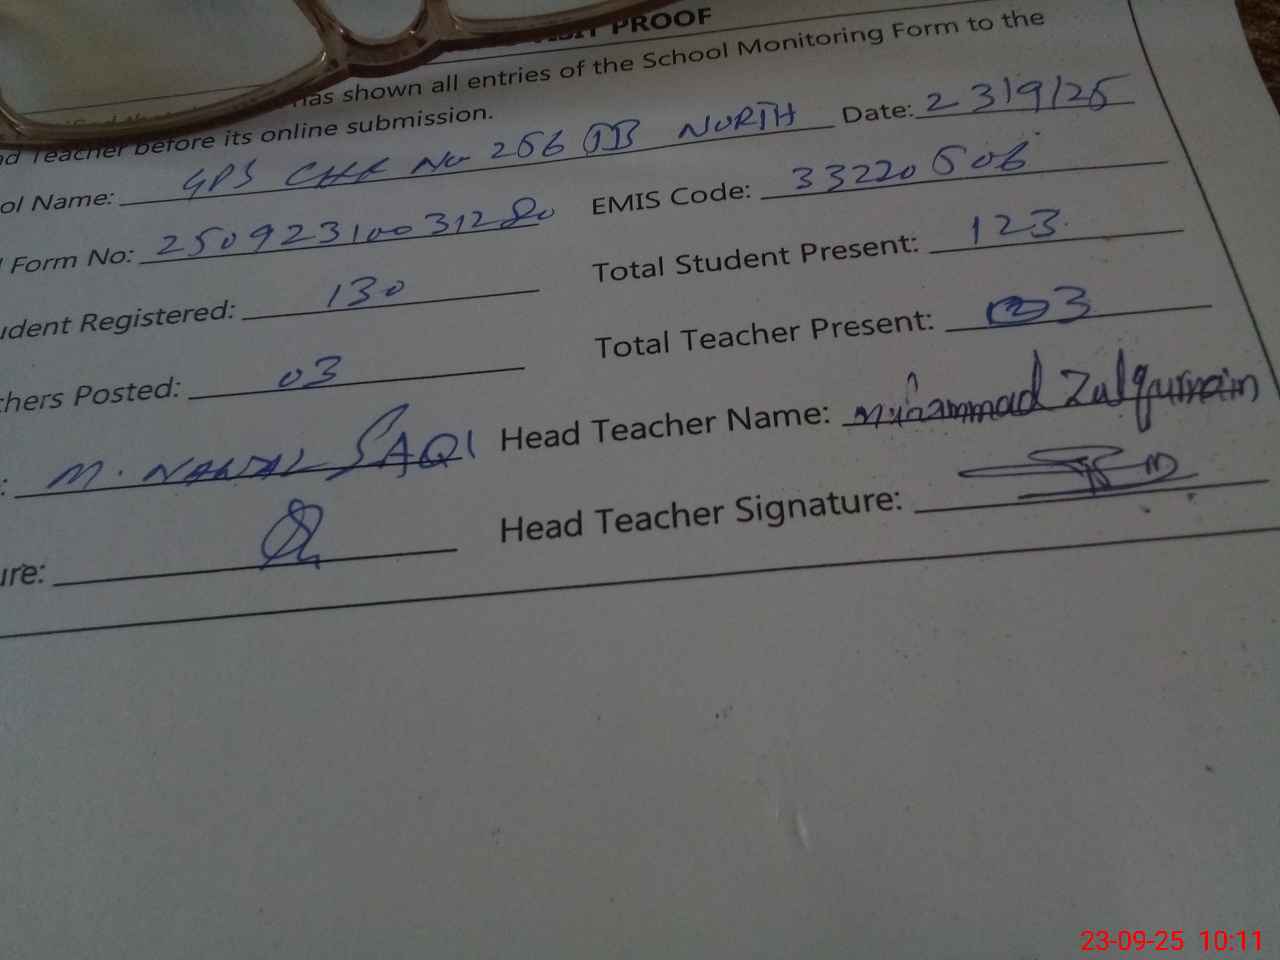 VISIT PROOF
has shown all entries of the School Monitoring Form to the
Teacher before its online submission.
ol Name: GPS CHK No 256 TDB NORTH Date: 23/9/25
Form No: 25092310031280 EMIS Code: 33220506
udent Registered: 130 Total Student Present: 123
chers Posted: 03 Total Teacher Present: 03
: M. NAWAZ SAQI Head Teacher Name: Muhammad Zulqurnain
ure: Head Teacher Signature:
23-09-25 10:11